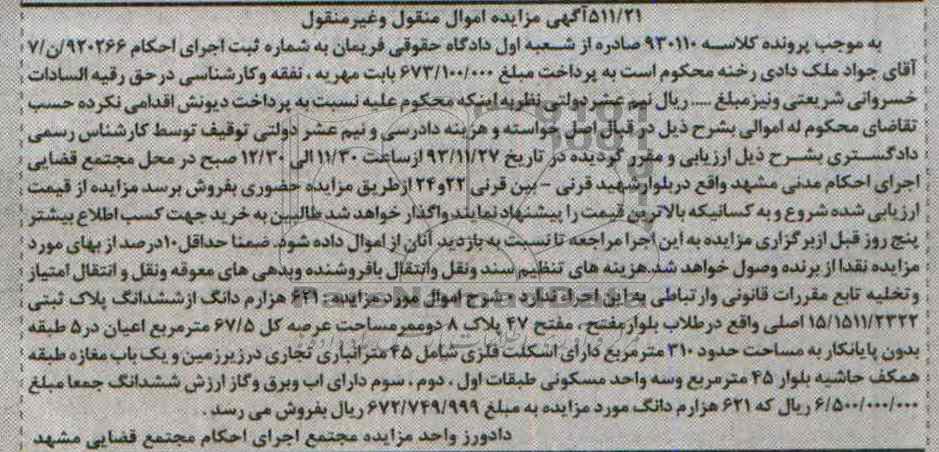 ۵۱۱/۲۱آگهی مزایده اموال منقول وغیرمنقول
به موجب پرونده کلاسه ۹۳۰۱۱۰ صادره از شعبه اول دادگاه حقوقی فریمان به شماره ثبت اجرای احکام ۹۲۰۲۶۶/ن/۷
آقای جواد ملک دادی رخنه محکوم است به پرداخت مبلغ ۶۷۳/۱۰۰/۰۰۰ بابت مهریه ، نفقه وکارشناسی درحق رقیه السادات
خسروانی شریعتی ونیزمبلغ ..... ریال نیم عشردولتی نظربه اینکه محکوم علیه نسبت به پرداخت دیونش اقدامی نکرده حسب
تقاضای محکوم له اموالی بشرح ذیل در قبال اصل خواسته و هزینه دادرسی و نیم عشر دولتی توقیف توسط کارشناس رسمی
دادگستری بشرح ذیل ارزیابی و مقرر گردیده در تاریخ ۹۳/۱۱/۲۷ ازساعت ۱۱/۳۰ الی ۱۲/۳۰ صبح در محل مجتمع قضایی
اجرای احکام مدنی مشهد واقع دربلوارشهید قرنی – بین قرنی ۲۲و۲۴ ازطریق مزایده حضوری بفروش برسد مزایده از قیمت
ارزیابی شده شروع و به کسانیکه بالاترین قیمت را پیشنهاد نمایند واگذار خواهد شد طالبین به خرید جهت کسب اطلاع بیشتر
پنج روز قبل ازبرگزاری مزایده به این اجرا مراجعه تا نسبت به بازدید آنان از اموال داده شود. ضمنا حداقل۱۰درصد از بهای مورد
مزایده نقدا از برنده وصول خواهد شد.هزینه های تنظیم سند ونقل وانتقال بافروشنده وبدهی های معوقه ونقل و انتقال امتیاز
وتخلیه تابع مقررات قانونی وارتباطی به این اجراء ندارد . مشرح اموال مورد مزایده : ۶۲۱ هزارم دانگ ازششدانگ پلاک ثبتی
۱۵/۱۵۱۱/۲۳۲۲ اصلی واقع درطلاب بلوارمفتح ، مفتح ۴۷ پلاک ۸ دوممرمساحت عرصه کل ۶۷/۵ مترمربع اعیان در۵ طبقه
بدون پایانکار به مساحت حدود ۳۱۰ مترمربع دارای اسکلت فلزی شامل ۴۵ مترانباری تجاری درزیرزمین و یک باب مغازه طبقه
همکف حاشیه بلوار ۴۵ مترمربع وسه واحد مسکونی طبقات اول ، دوم ، سوم دارای اب وبرق وگاز ارزش ششدانگ جمعا مبلغ
۶/۵۰۰/۰۰۰/۰۰۰ ریال که ۶۲۱ هزارم دانگ مورد مزایده به مبلغ ۶۷۲/۷۴۹/۹۹۹ ریال بفروش می رسد .
دادورز واحد مزایده مجتمع اجرای احکام مجتمع قضایی مشهد